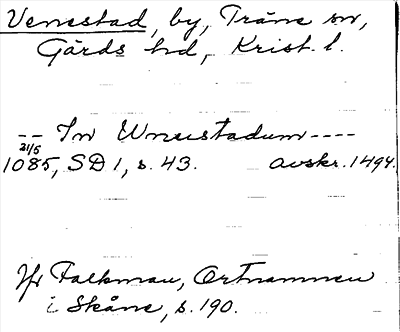 Venestad, by, Träne sn,
Gärds hd, Krist. l.
-- In Wneistadum ----
21/5
1085, SD 1, s. 43. avskr. 1494.
Jfr Falkman, Ortnamnen
i Skåne, s. 190.